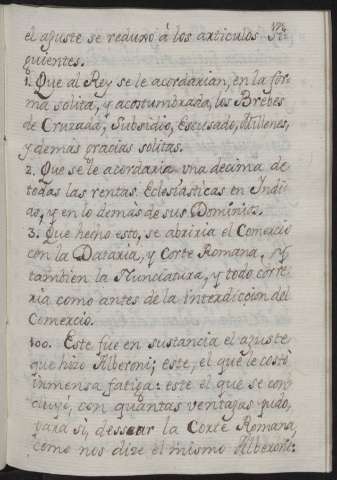 el ajuste se reduxo à los articulos si-
guientes.
1. Que al Rey se le acordarian, en la for-
ma solita, y acostumbrada, los Brebes
de Cruzada, Subsidio, Escusado, Millones,
y demàs gracias solitas.
2. Que se le acordaria una decima de
todas las rentas Eclesiasticas en Indi-
as, y en lo demàs de sus Dominios.
3. Que hecho esto, se abriria el Comercio
con la Dataria, y Corte Romana, y
tambien la Nunciatura, y todo corre-
ria como antes de la interdiccion del
Comercio.
100. Este fue en sustancia el ajuste
que hizo Alberoni; este, el que le costò
inmensa fatiga: este el que se con-
cluyò, con quantas ventajas pudo,
para sì, desear la Corte Romana,
como nos dize el mismo Alberoni: